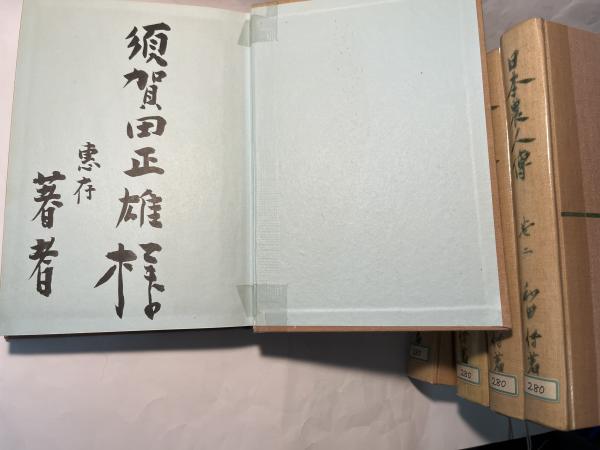 須賀田正雄様
惠存
著者
日本農人傳
卷二
和田伝著
280
280
280